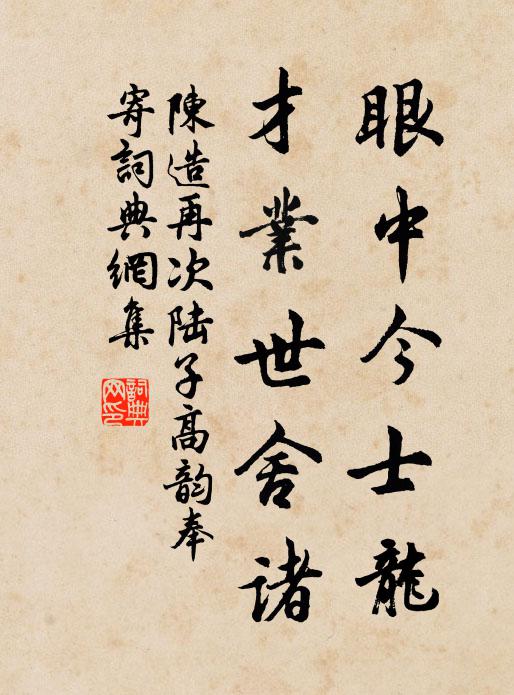 眼中今士龍
才業世舍諸
陳造再次陸子高韵奉
寄詞典網集
詞典网印